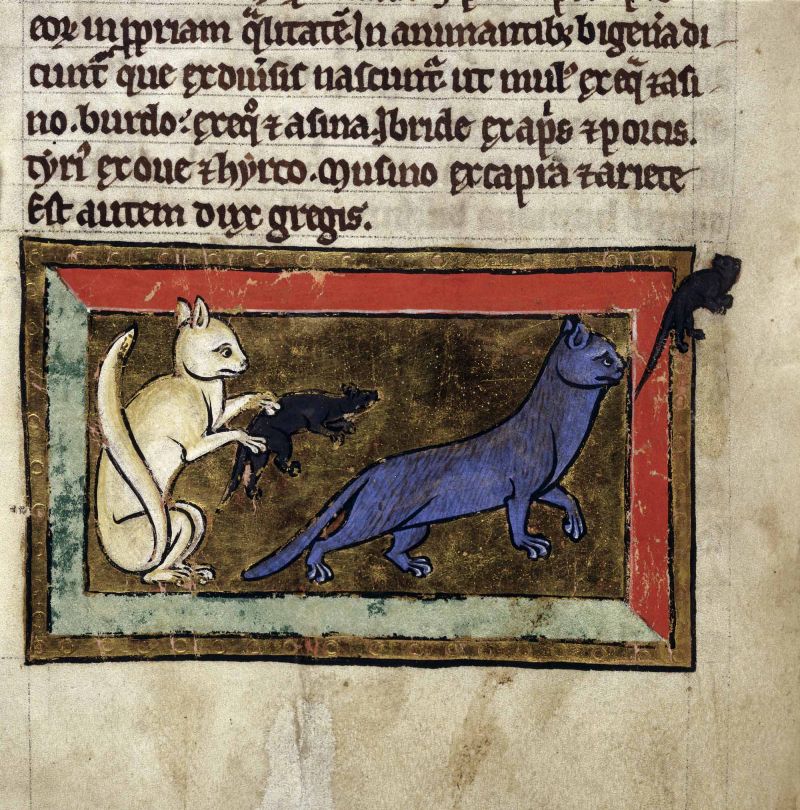 eoꝝ in ꝓpriam q̄litatē. In animantibꝫ bigena di
cunt̄ que ex diuersis nascunt̄ ut mulꝰ ex eq̄ ⁊ asi
no. burdo: ex eqͦ ⁊ asina. Ibride ex apͥs ⁊ porcis.
tyrī ex oue ⁊ hyrco. Musino ex capra ⁊ ariete
Est autem dux gregis.